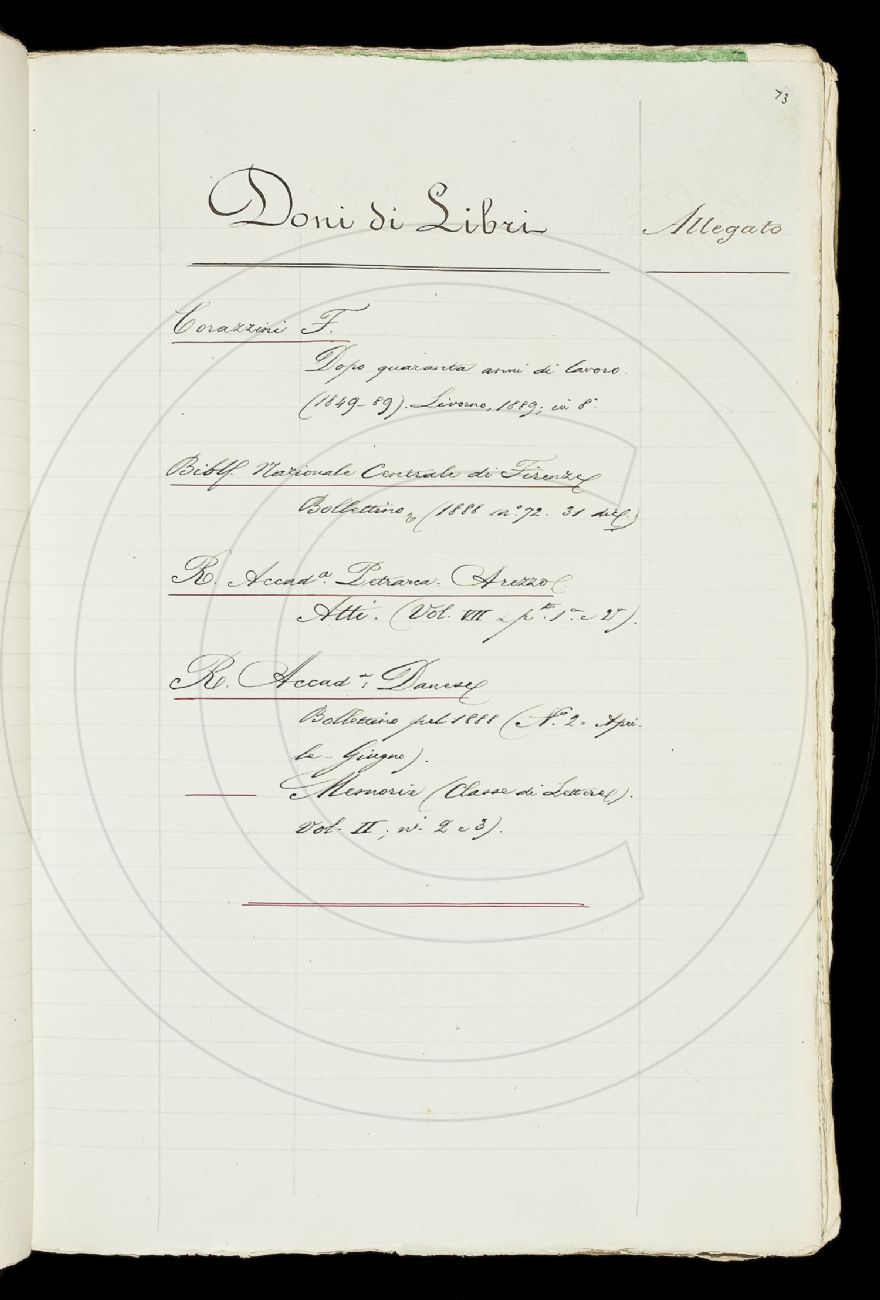 73
Doni di Libri
Allegato
Corazzini F.
Dopo quaranta anni di lavoro.
(1849-89). Livorno, 1889; in 8°.
Nazionale Centrale di Firenze
Bollettino (1888 n° 72. 31 dic.)
R. Accadᵃ. Petrarca. Arezzo
Atti. (Vol. VII 1ᵃ e 2ᵃ).
R. Accadᵃ. Danese
Bollettino pel 1888 (N°. 2. Apri-
le - Giugno).
Memorie (Classe di Lettere).
Vol. II; nⁱ. 2 e 3).